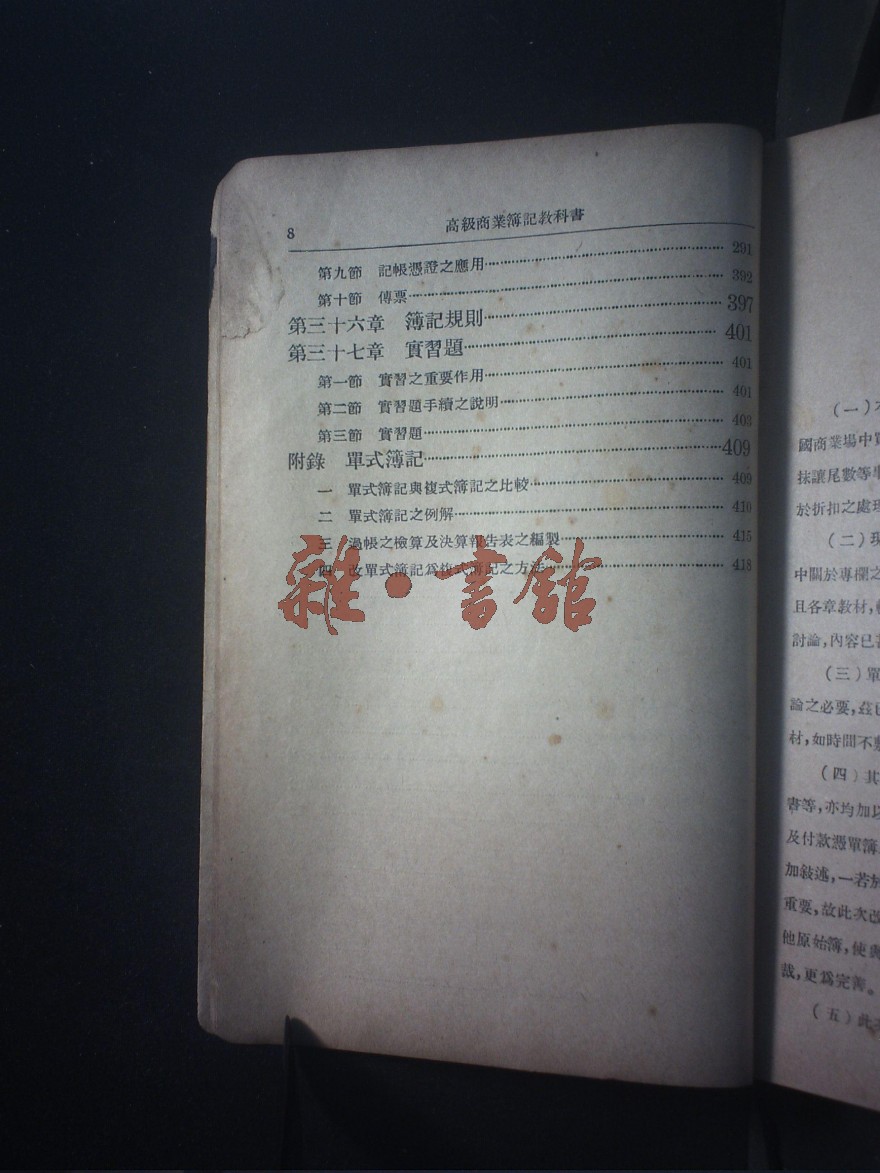 8 高級商業簿記教科書
第九節 記帳憑證之應用 291
第十節 傳票 392
第三十六章 簿記規則 397
第三十七章 實習題 401
第一節 實習之重要作用 401
第二節 實習題手續之說明 401
第三節 實習題 403
附錄 單式簿記 409
一 單式簿記與複式簿記之比較 409
二 單式簿記之例解 410
三 過帳之檢算及決算報告表之編製 415
四 改單式簿記爲複式簿記之方法 418
雜·書館
(一)
國商業場中
抹讓尾數等
於折扣之處理
(二)現
中關於專欄之
且各章教材,
討論,內容已
(三)單
論之必要,茲
材,如時間不敷
(四)其
書等,亦均加以
及付款憑單簿
加敍述,一若於
重要,故此次改
他原始簿,使
哉,更爲完善。
(五)此